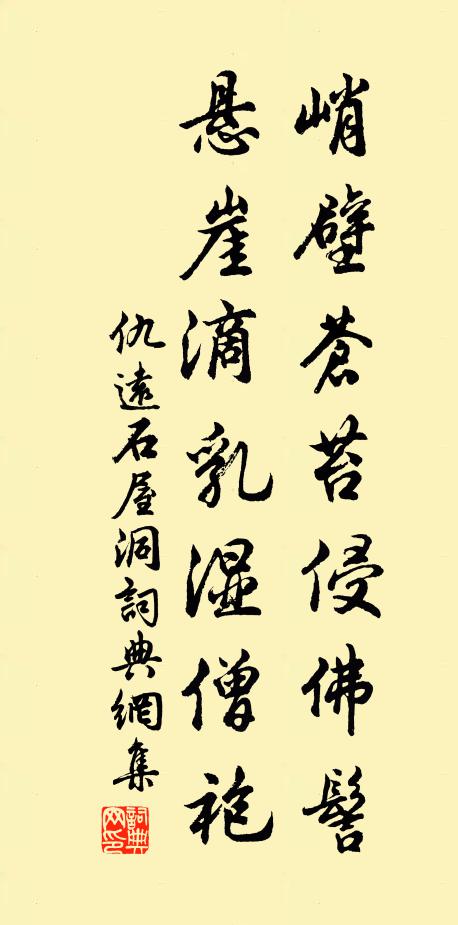 峭壁苍苔侵佛髻
悬崖滴乳湿僧袍
仇遠石屋洞詞典網集
詞典网印